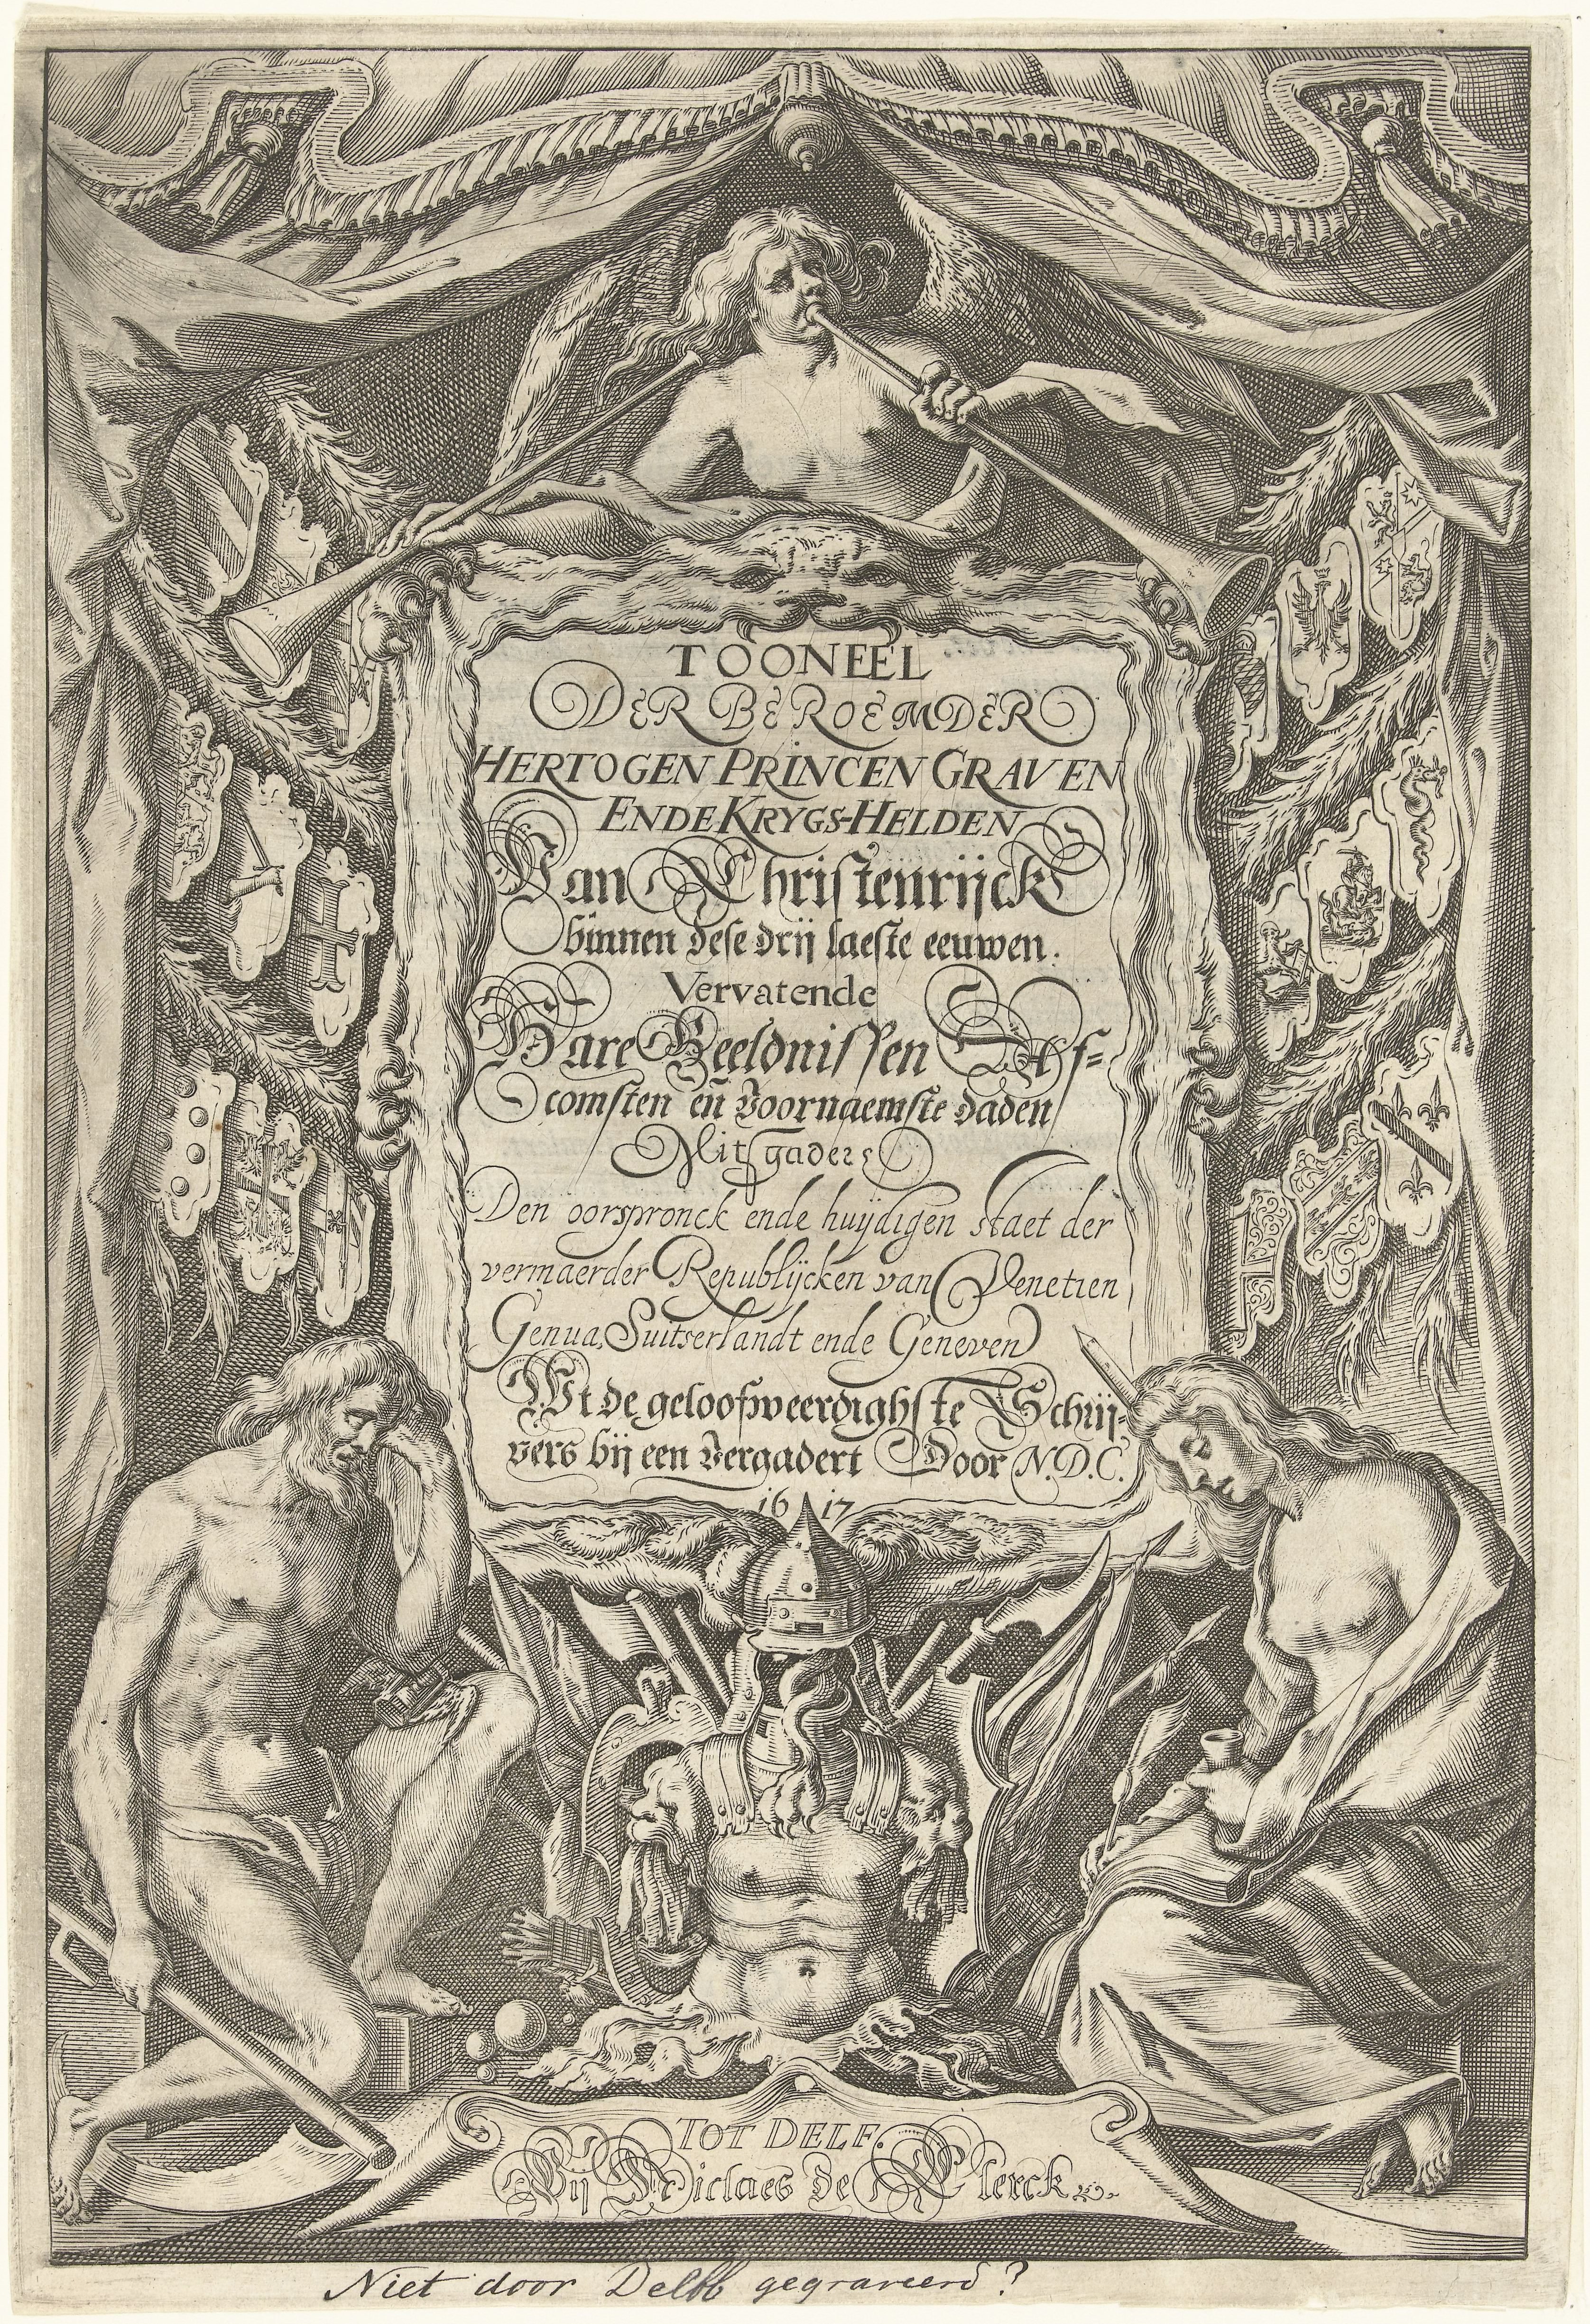 TOONEEL
DER BEROEMDER
HERTOGEN PRINCEN GRAVEN
ENDE KRYGS-HELDEN
Van Christenrijck
binnen dese drij laeste eeuwen.
Vervatende
Hare Beeldnissen Af-
comsten en̄ voornaemste daden
Mitsgaders
Den oorspronck ende huijdigen staet der
vermaerder Republijcken van Venetien
Genua, Suitserlandt ende Geneven
Wt de geloofweerdighste Schrij-
vers bij een vergadert Door N.D.C.
1617
TOT DELF.
Bij Niclaes de Clerck
Niet door Delff gegraveerd?